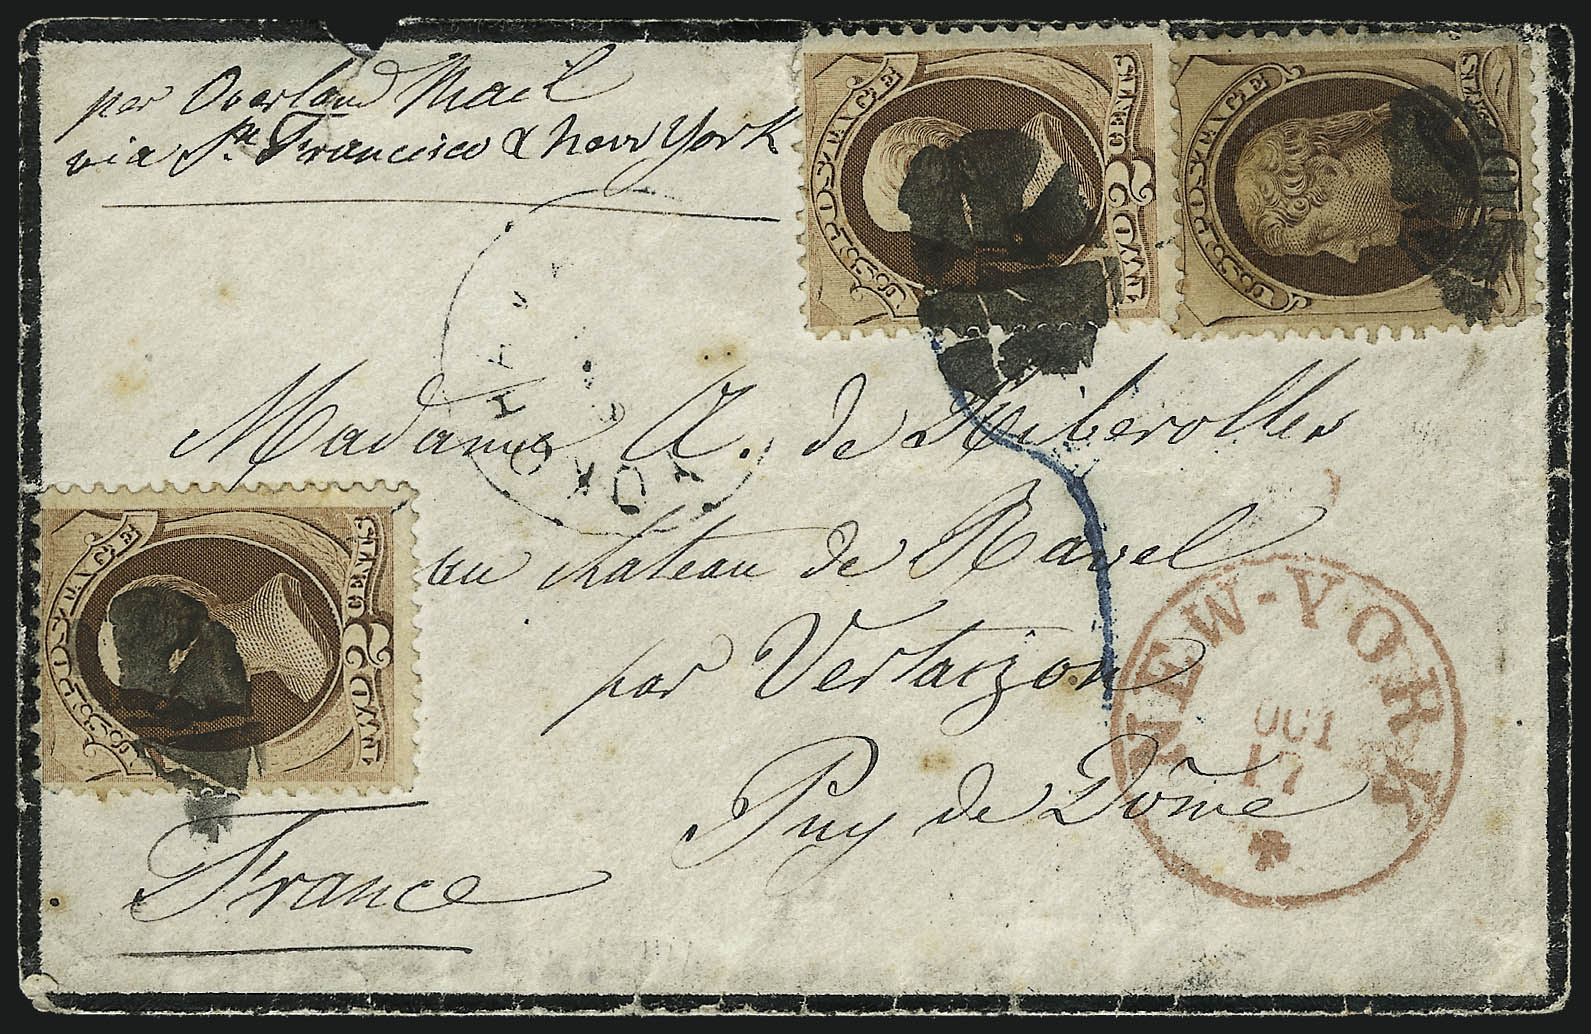 per Overland Mail
via Sn. Francisco & New York
U.S. POSTAGE
TWO 2 CENTS
U.S. POSTAGE
10
CENTS
YOKOHAMA
Madame A. de Riberolles
au chateau de Ravel
par Vertaizon
Puy de Dôme
France
U.S. POSTAGE
TWO 2 CENTS
NEW-YORK
OCT
17